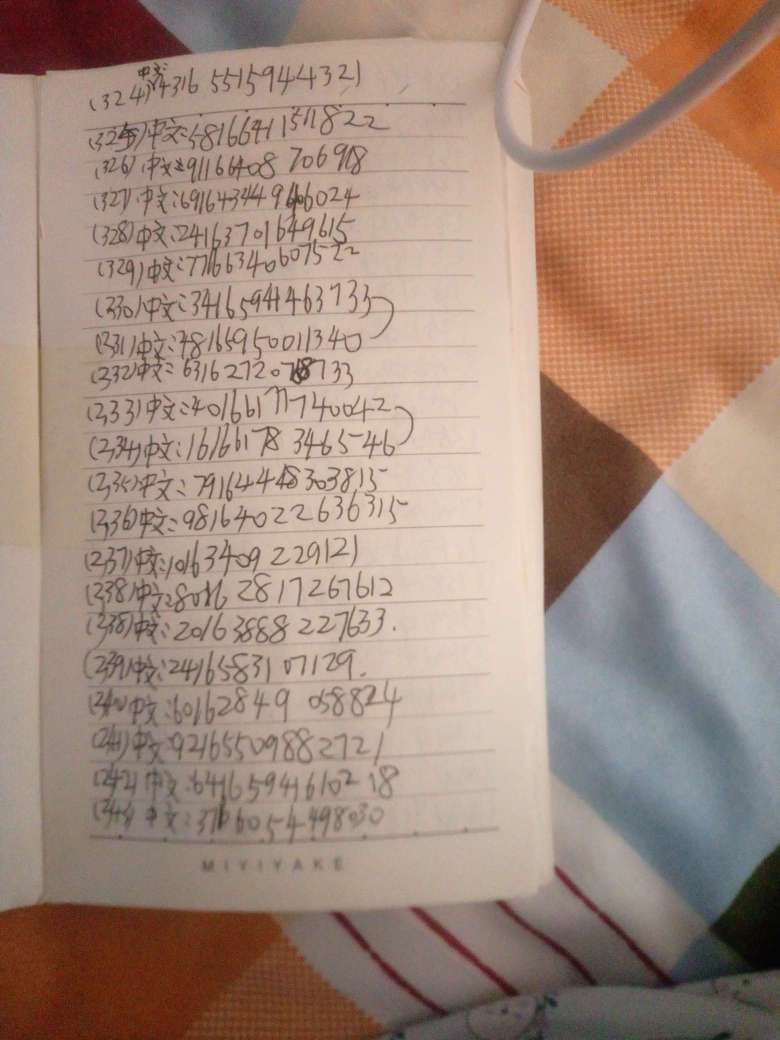 (324)中文:4316 5515944321
(325)中文:58166411511822
(326)中文:91166408 706918
(327)中文:6916434449606024
(328)中文:24163701649615
(329)中文:77166340607522
(330)中文:34165941463733
(331)中文:48165950011340
(332)中文:63162720768733
(333)中文:40166177740042
(234)中文:16166178 3465546
(235)中文:79164448303815
(236)中文:98164022636315
(237)中文:10163409229121
(238)中文:80162817267612
(238)中文:20163888227633.
(239)中文:24165831 07129.
(240)中文:60162849 058824
(241)中文:92165509882721
(242)中文:64165941610218
(243)中文:37166054498030
MIYIYAKE